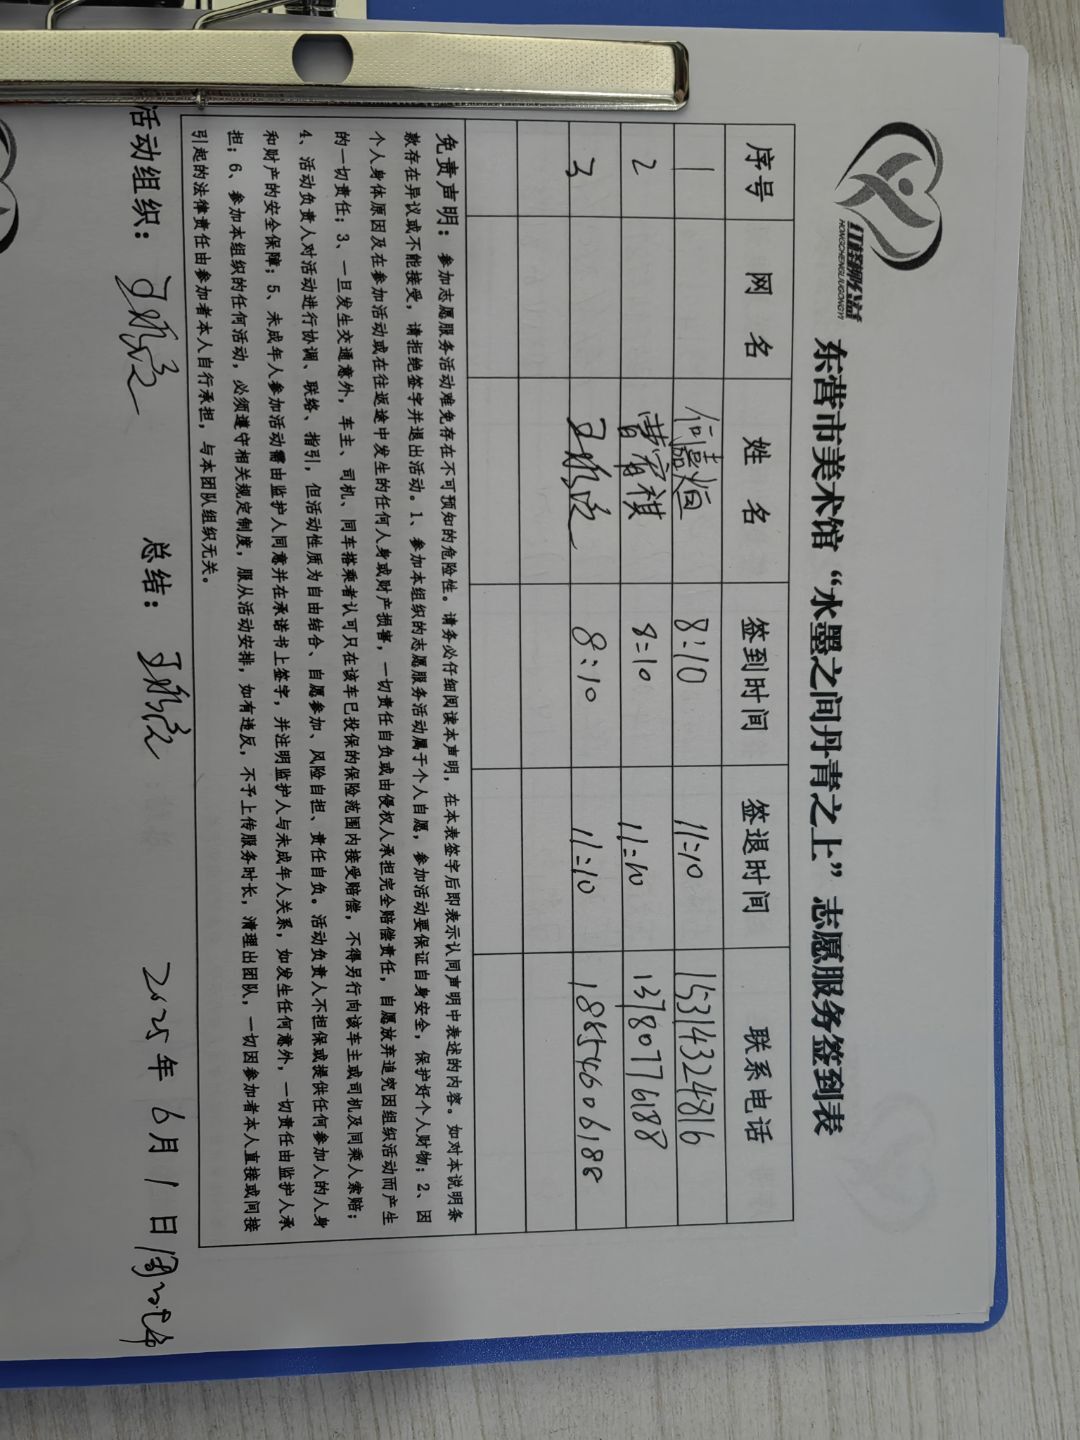 红橙柳公益
HONGCHENGLIUGONGYI
东营市美术馆“水墨之间丹青之上”志愿服务签到表
序号 网 名 姓 名 签到时间 签退时间 联系电话
1 8:10 11:10 15314324816
2 曹睿祺 8:10 11:10 13780776188
3 8:10 11:10 18854606188
免责声明：参加志愿服务活动难免存在不可预知的危险性。请务必仔细阅读本声明，在本表签字后即表示认同声明中表述的内容。如对本说明条
款存在异议或不能接受，请拒绝签字并退出活动。1、参加本组织的志愿服务活动属于个人自愿，参加活动要保证自身安全，保护好个人财物；2、因
个人身体原因及在参加活动或在往返途中发生的任何人身或财产损害，一切责任自负或由侵权人承担完全赔偿责任，自愿放弃追究因组织活动而产生
的一切责任；3、一旦发生交通意外，车主、司机、同车搭乘者认可只在该车已投保的保险范围内接受赔偿，不得另行向该车主或司机及同乘人索赔；
4、活动负责人对活动进行协调、联络、指引，但活动性质为自由结合、自愿参加、风险自担、责任自负。活动负责人不担保或提供任何参加人的人身
和财产的安全保障；5、未成年人参加活动需由监护人同意并在承诺书上签字，并注明监护人与未成年人关系，如发生任何意外，一切责任由监护人承
担；6、参加本组织的任何活动，必须遵守相关规定制度，服从活动安排，如有违反，不予上传服务时长，清理出团队，一切因参加者本人直接或间接
引起的法律责任由参加者本人自行承担，与本团队组织无关。
活动组织： 总结： 2025年6月1日周日上午